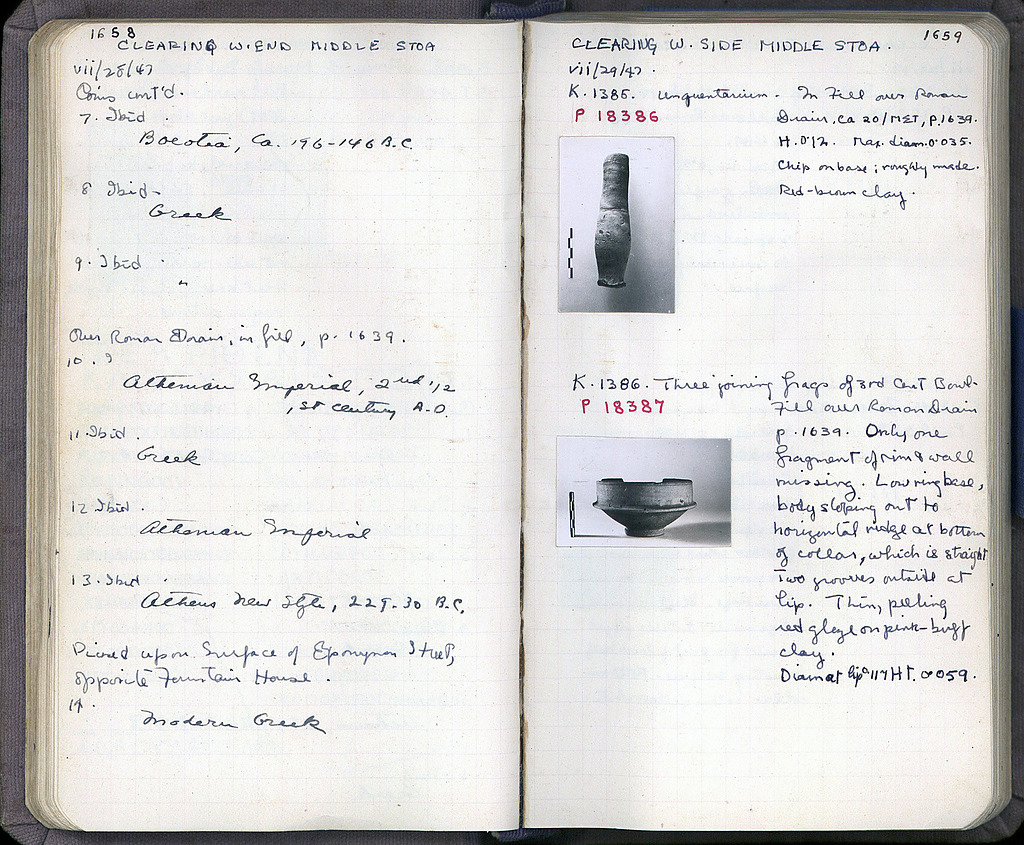 1658
CLEARING W. END MIDDLE STOA
vii/28/47
Coins cont'd.
7. Ibid.
Boeotia, Ca. 196-146 B.C.
8 Ibid.
Greek
9. Ibid
"
Over Roman Drain, in fill, p. 1639.
10.
Athenian Imperial, 2nd 1/2
1st century A.D.
11 Ibid.
Greek
12 Ibid.
Athenian Imperial
13. Ibid
Athens New Style, 229-30 B.C.
upon Surface of Eponymon Street,
opposite Fountain House.
14.
Modern Greek
1659
CLEARING W. SIDE MIDDLE STOA.
vii/29/47.
K. 1385. Unguentarium. In Fill over Roman
P 18386
Drain, ca 20/ΜΣΤ, p. 1639.
H. 0.12. Max. diam. 0.035.
Chip on base; roughly made.
Red-brown clay.
K. 1386. Three joining frags of 3rd Cent Bowl.
P 18387
Fill over Roman Drain
p. 1639. Only one
fragment of rim & wall
missing. Low ring base,
body sloping out to
horizontal ridge at bottom
of collar, which is straight
Two grooves outside at
lip. Thin, peeling
red glaze on pink-buff
clay.
Diam at lip 0.117 HT. 0.059.